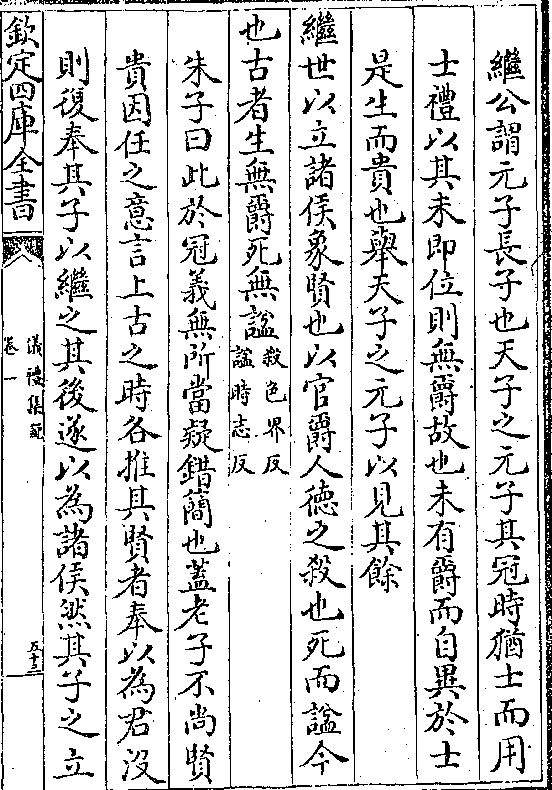 繼公謂元子長子也天子之元子其冠時猶士而用
士禮以其未即位則無爵故也未有爵而自異於士
是生而貴也舉天子之元子以見其餘
繼世以立諸侯象賢也以官爵人德之殺也死而諡今
也古者生無爵死無諡
殺色界反
諡時志反
朱子曰此於冠義無所當疑錯簡也蓋老子不尚賢
貴因任之意言上古之時各推其賢者奉以為君沒
則復奉其子以繼之其後遂以為諸侯然其子之立
欽定四庫全書
儀禮集說
卷一
五十三